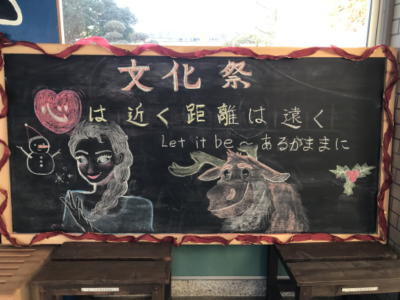 文化祭
心は近く距離は遠く
Let it be～あるがままに